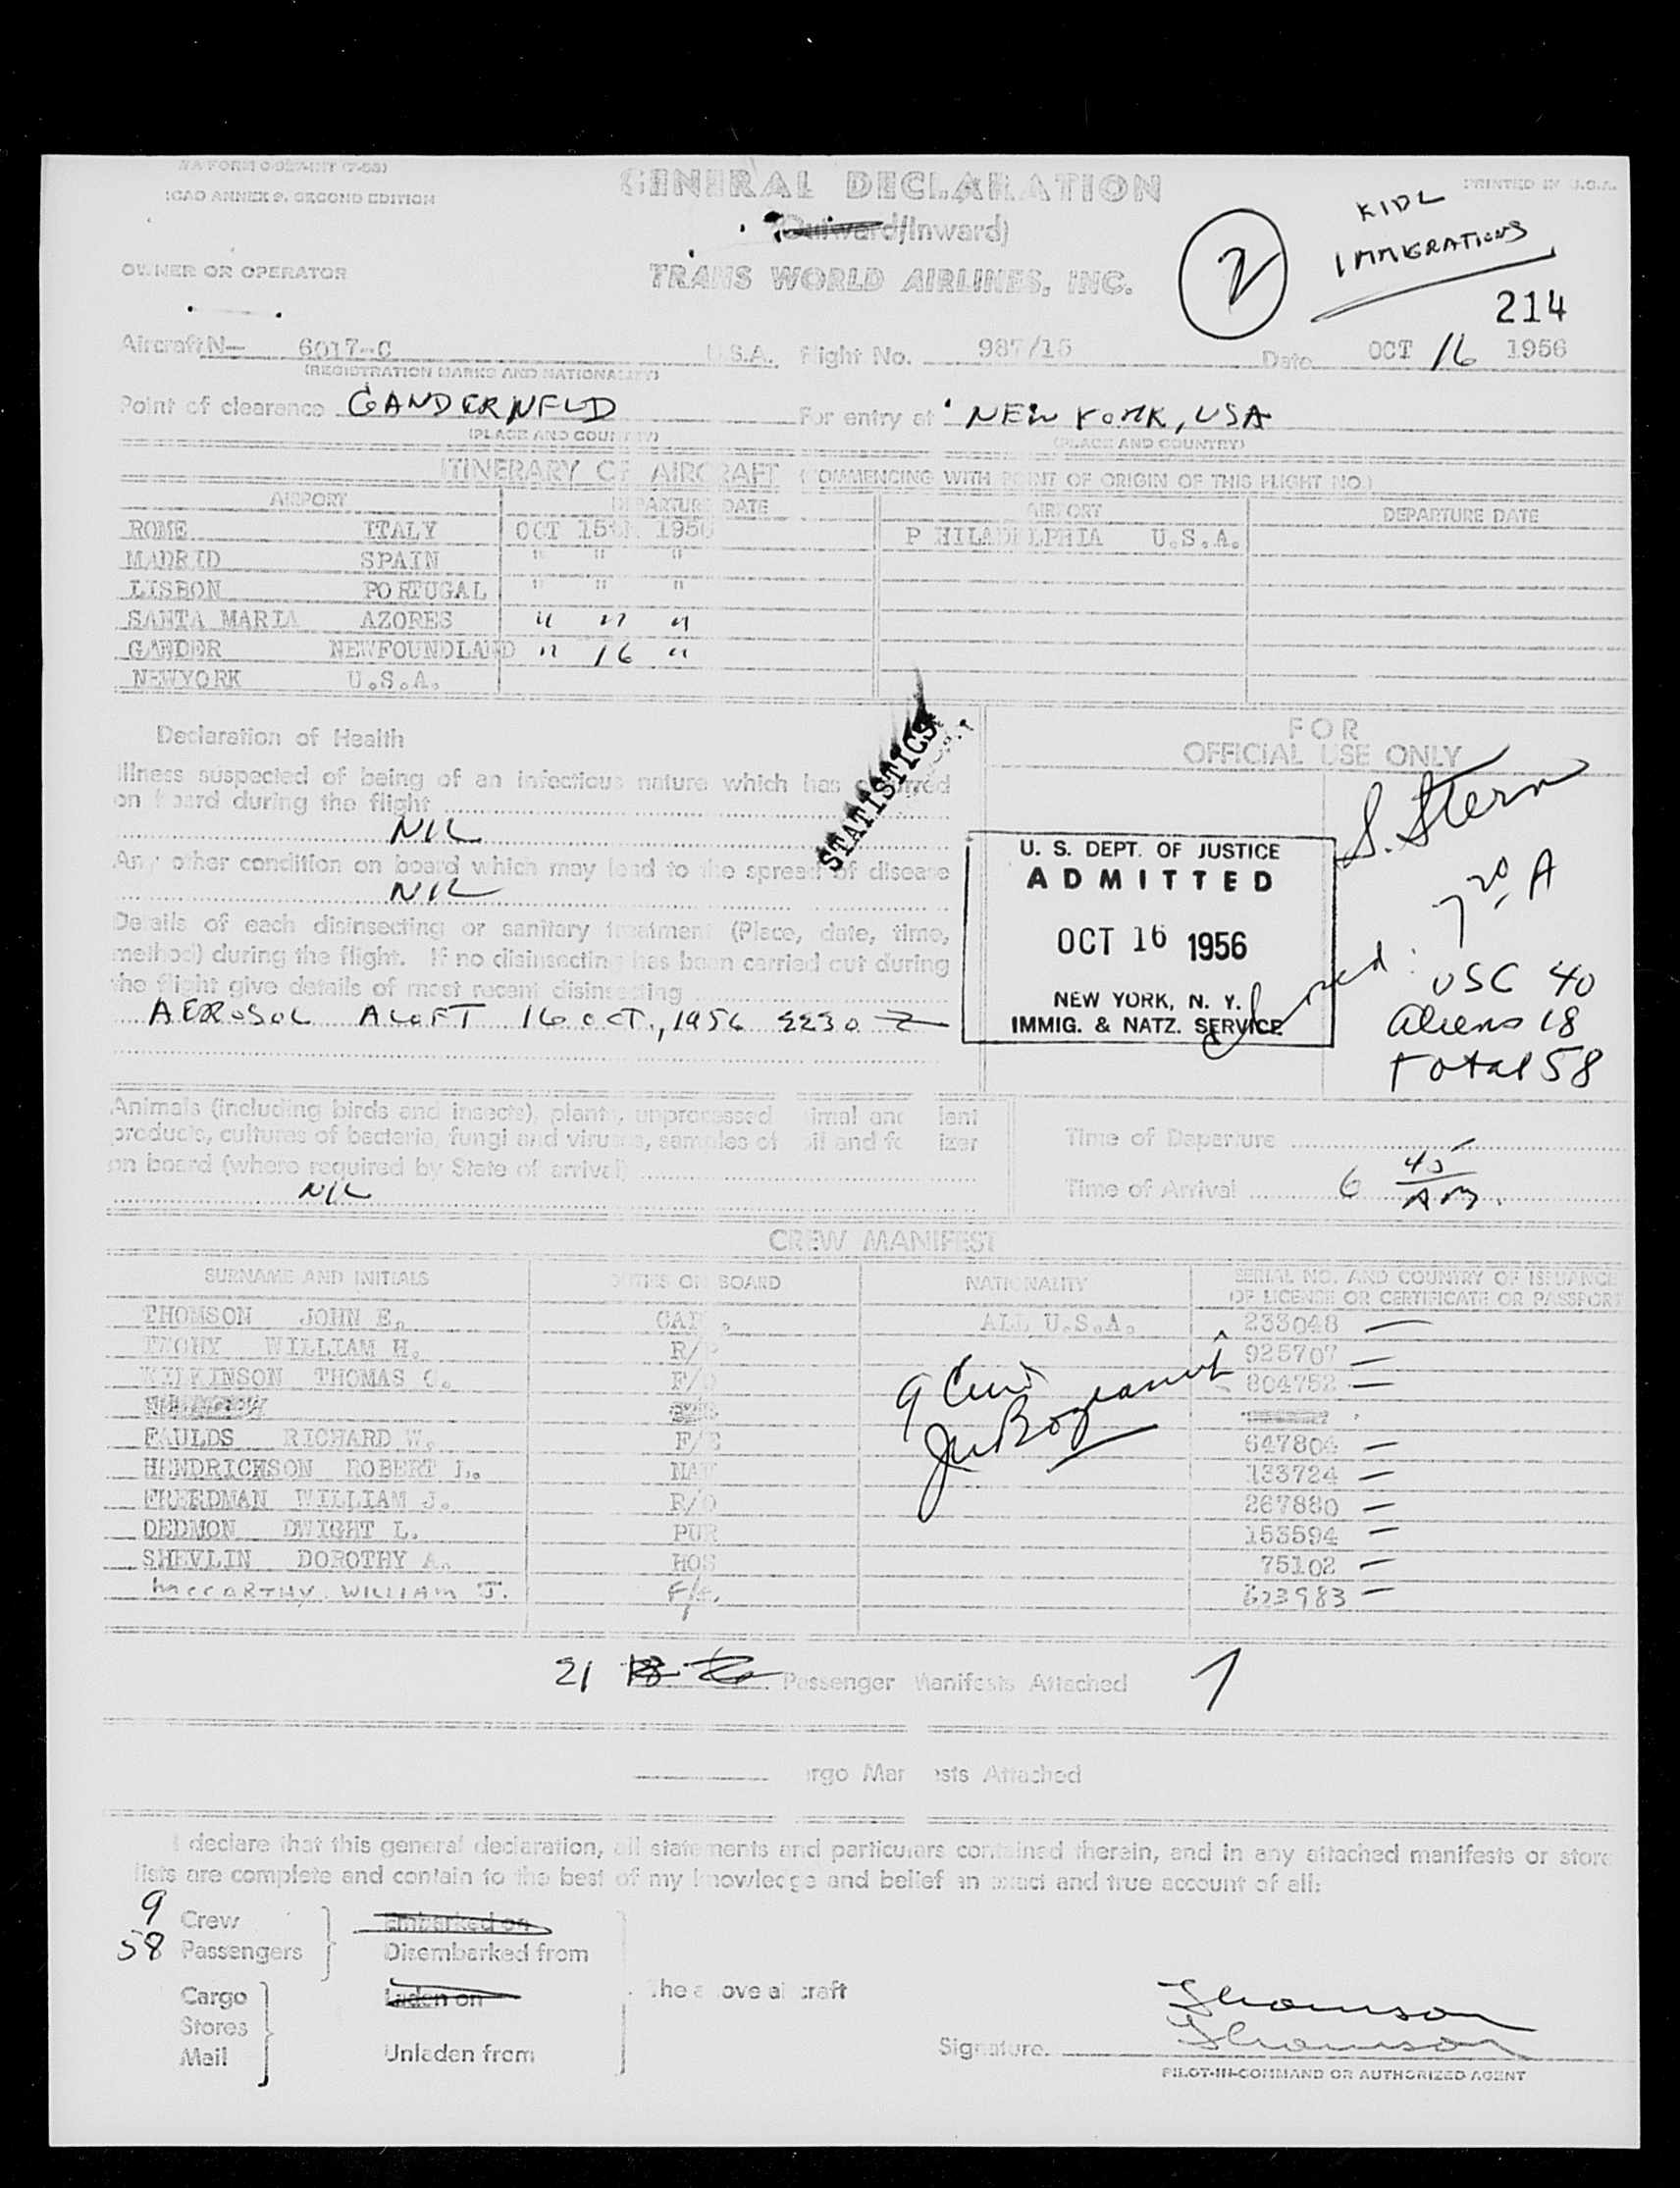 ICAO ANNEX 9, SECOND EDITION
PRINTED IN U.S.A.
GENERAL DECLARATION
(Outward/Inward)
KIDL
IMMIGRATIONS
2
OWNER OR OPERATOR
TRANS WORLD AIRLINES, INC.
214
Aircraft N— 6017-C U.S.A. Flight No. 987/15 Date OCT 16 1956
(REGISTRATION MARKS AND NATIONALITY)
Point of clearance GANDER NFLD For entry at NEW YORK, USA
(PLACE AND COUNTRY) (PLACE AND COUNTRY)
ITINERARY OF AIRCRAFT (COMMENCING WITH POINT OF ORIGIN OF THIS FLIGHT NO.)
AIRPORT DEPARTURE DATE AIRPORT DEPARTURE DATE
ROME ITALY OCT 15th 1956 PHILADELPHIA U.S.A.
MADRID SPAIN " " "
LISBON PORTUGAL " " "
SANTA MARIA AZORES " " "
GANDER NEWFOUNDLAND " 16 "
NEWYORK U.S.A.
Declaration of Health
Illness suspected of being of an infectious nature which has occurred
on board during the flight
NIL
Any other condition on board which may lead to the spread of disease
NIL
Details of each disinsecting or sanitary treatment (Place, date, time,
method) during the flight. If no disinsecting has been carried out during
the flight give details of most recent disinsecting
AEROSOL ALOFT 16 OCT., 1956 2230 Z
STATISTICS
FOR
OFFICIAL USE ONLY
S. Stern
7 20 A
U. S. DEPT. OF JUSTICE
ADMITTED
OCT 16 1956
NEW YORK, N. Y.
IMMIG. & NATZ. SERVICE
USC 40
Aliens 18
Total 58
Animals (including birds and insects), plants, unprocessed animal and plant
products, cultures of bacteria, fungi and viruses, samples of soil and fertilizer
on board (where required by State of arrival)
NIL
Time of Departure
Time of Arrival 6 45 AM.
CREW MANIFEST
SURNAME AND INITIALS DUTIES ON BOARD NATIONALITY SERIAL NO. AND COUNTRY OF ISSUANCE
OF LICENSE OR CERTIFICATE OR PASSPORT
THOMSON JOHN E. CAPT. ALL U.S.A. 233048
WILLIAM H. 925707
WILKINSON THOMAS C. F/O 804752
FAULDS RICHARD W. F/E 647804
HENDRICKSON ROBERT L. NAV 133724
FREEDMAN WILLIAM J. R/O 267880
DEDMON DWIGHT L. PUR 153594
SHEVLIN DOROTHY A. HOS 75102
McCARTHY WILLIAM J. F/E. 623983
9 Crew
21 Passenger Manifests Attached 1
Cargo Manifests Attached
I declare that this general declaration, all statements and particulars contained therein, and in any attached manifests or store
lists are complete and contain to the best of my knowledge and belief an exact and true account of all:
9 Crew Embarked on
58 Passengers Disembarked from
Cargo Laden on The above aircraft
Stores
Mail Unladen from
Thomson
Signature. Thomson
PILOT-IN-COMMAND OR AUTHORIZED AGENT